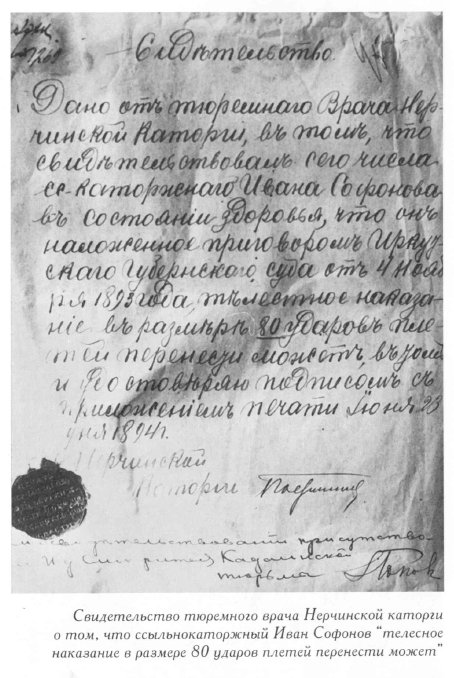 Свидѣтельство.
Дано отъ тюремнаго Врача Нер-
чинской Каторги, въ томъ, что
свидѣтельствовалъ сего числа
сс-каторжнаго Ивана Софонова
въ состояніи здоровья, что онъ
наложенное приговоромъ Иркут-
скаго Губернскаго суда отъ 4 Нояб-
ря 1893 года, тѣлестное наказа-
ніе въ размѣрѣ 80 ударовъ пле-
тей перенести можетъ, въ томъ
и удостовѣряю подписомъ съ
приложеніемъ печати Іюня 23
дня 1894 г.
Нерчинской
Каторги
присутство
Кадаинской
тюрьмы Поповъ
Свидетельство тюремного врача Нерчинской каторги
о том, что ссыльнокаторжный Иван Софонов “телесное
наказание в размере 80 ударов плетей перенести может”